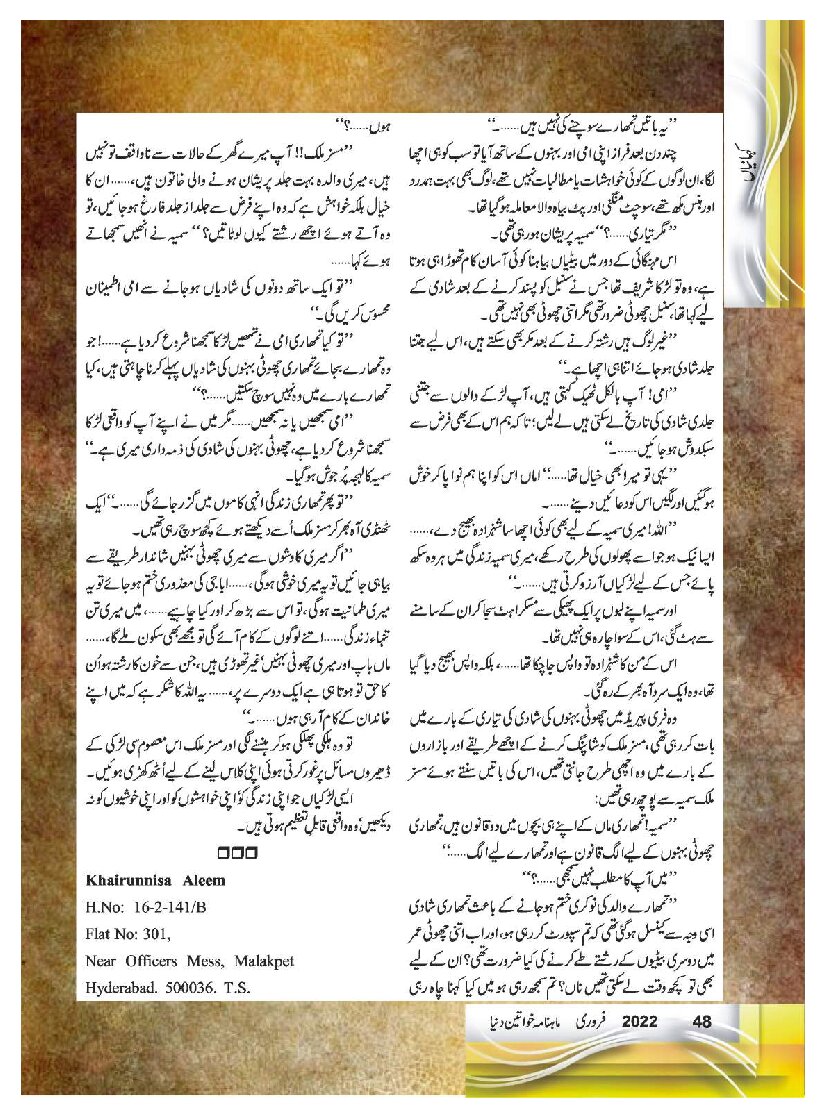 ’’یہ باتیں تمھارے سوچنے کی نہیں ہیں……۔‘‘
چند دن بعد فراز اپنی امی اور بہنوں کے ساتھ آیا تو سب کو ہی اچھا
لگا، ان لوگوں کے کوئی خواہشات یا مطالبات نہیں تھے، لوگ بھی بہت ہمدرد
اور ہنس مکھ تھے، سو چٹ منگنی اور پٹ بیاہ والا معاملہ ہو گیا تھا۔
’’مگر تیاری……؟‘‘ سمیہ پریشان ہو رہی تھی۔
اس مہنگائی کے دور میں بیٹیاں بیاہنا کوئی آسان کام تھوڑا ہی ہوتا
ہے، وہ تو لڑکا شریف تھا جس نے سنبل کو پسند کرنے کے بعد شادی کے
لیے کہا تھا، سنبل چھوٹی ضرور تھی مگر اتنی چھوٹی بھی نہیں تھی۔
’’غیر لوگ ہیں رشتہ کرنے کے بعد مکر بھی سکتے ہیں، اس لیے جتنا
جلد شادی ہو جائے اتنا ہی اچھا ہے۔‘‘
’’امی! آپ بالکل ٹھیک کہتی ہیں، آپ لڑکے والوں سے جتنی
جلدی شادی کی تاریخ لے سکتی ہیں لے لیں؛ تاکہ ہم اس کے بھی فرض سے
سبکدوش ہو جائیں……۔‘‘
’’یہی تو میرا بھی خیال تھا……‘‘ اماں اس کو اپنا ہم نوا پا کر خوش
ہو گئیں اور لگیں اس کو دعائیں دینے……۔
’’اللہ! میری سمیہ کے لیے بھی کوئی اچھا سا شہزادہ بھیج دے،……
ایسا نیک ہو جو اسے پھولوں کی طرح رکھے، میری سمیہ زندگی میں ہر وہ سکھ
پائے جس کے لیے لڑکیاں آرزو کرتی ہیں……۔‘‘
اور سمیہ اپنے لبوں پر ایک پھیکی سے مسکراہٹ سجا کر ان کے سامنے
سے ہٹ گئی، اس کے سوا چارہ ہی نہیں تھا۔
اس کے من کا شہزادہ تو واپس جا چکا تھا……، بلکہ واپس بھیج دیا گیا
تھا، وہ ایک سرد آہ بھر کے رہ گئی۔
وہ فری پیریڈ میں چھوٹی بہنوں کی شادی کی تیاری کے بارے میں
بات کر رہی تھی، مسز ملک کو شاپنگ کرنے کے اچھے طریقے اور بازاروں
کے بارے میں وہ اچھی طرح جانتی تھیں، اس کی باتیں سنتے ہوئے مسز
ملک سمیہ سے پوچھ رہی تھیں:
’’سمیہ! تمھاری ماں کے اپنے ہی بچوں میں دو قانون ہیں، تمھاری
چھوٹی بہنوں کے لیے الگ قانون ہے اور تمھارے لیے الگ……‘‘
’’میں آپ کا مطلب نہیں سمجھی……؟‘‘
’’تمھارے والد کی نوکری ختم ہو جانے کے باعث تمھاری شادی
اسی وجہ سے کینسل ہو گئی تھی کہ تم سپورٹ کر رہی ہو، اور اب اتنی چھوٹی عمر
میں دوسری بیٹیوں کے رشتے طے کرنے کی کیا ضرورت تھی؟ ان کے لیے
بھی تو کچھ وقت لے سکتی تھیں ناں؟ تم سمجھ رہی ہو میں کیا کہنا چاہ رہی
ہوں……؟‘‘
’’مسز ملک!! آپ میرے گھر کے حالات سے ناواقف تو نہیں
ہیں، میری والدہ بہت جلد پریشان ہونے والی خاتون ہیں،…… ان کا
خیال بلکہ خواہش ہے کہ وہ اپنے فرض سے جلد از جلد فارغ ہو جائیں، تو
وہ آتے ہوئے اچھے رشتے کیوں لوٹاتیں؟‘‘ سمیہ نے انھیں سمجھاتے
ہوئے کہا……
’’تو ایک ساتھ دونوں کی شادیاں ہو جانے سے امی اطمینان
محسوس کریں گی۔‘‘
’’تو کیا تمھاری امی نے تمھیں لڑکا سمجھنا شروع کر دیا ہے……! جو
وہ تمھارے بجائے تمھاری چھوٹی بہنوں کی شادیاں پہلے کرنا چاہتی ہیں، کیا
تمھارے بارے میں وہ نہیں سوچ سکتیں……؟‘‘
’’امی سمجھیں یا نہ سمجھیں…… مگر میں نے اپنے آپ کو واقعی لڑکا
سمجھنا شروع کر دیا ہے، چھوٹی بہنوں کی شادی کی ذمہ داری میری ہے۔‘‘
سمیہ کا لہجہ پُر جوش ہو گیا۔
’’تو پھر تمھاری زندگی انہی کاموں میں گزر جائے گی……۔‘‘ ایک
ٹھنڈی آہ بھر کر مسز ملک اُسے دیکھتے ہوئے کچھ سوچ رہی تھیں۔
’’اگر میری کاوشوں سے میری چھوٹی بہنیں شاندار طریقے سے
بیاہی جائیں تو یہ میری خوشی ہو گی،…… ابا جی کی معذوری ختم ہو جائے تو یہ
میری طمانیت ہو گی، تو اس سے بڑھ کر اور کیا چاہیے……، میں میری تن
تنہاء زندگی…… اتنے لوگوں کے کام آئے گی تو مجھے بھی سکون ملے گا،……
ماں باپ اور میری چھوٹی بہنیں‘ غیر تھوڑی ہیں، جن سے خون کا رشتہ ہو اُن
کا حق تو ہوتا ہی ہے ایک دوسرے پر،…… یہ اللہ کا شکر ہے کہ میں اپنے
خاندان کے کام آ رہی ہوں……۔‘‘
تو وہ ہلکی پھلکی ہو کر ہنسنے لگی اور مسز ملک اس معصوم سی لڑکی کے
ڈھیروں مسائل پر غور کرتی ہوئی اپنی کلاس لینے کے لیے اُٹھ کھڑی ہوئیں۔
ایسی لڑکیاں جو اپنی زندگی کو‘ اپنی خواہشوں کو اور اپنی خوشیوں کو نہ
دیکھیں‘ وہ واقعی قابلِ تعظیم ہوتی ہیں۔
□□□
Khairunnisa Aleem
H.No: 16-2-141/B
Flat No: 301,
Near Officers Mess, Malakpet
Hyderabad. 500036. T.S.
ماہنامہ خواتین دنیا فروری 2022 48